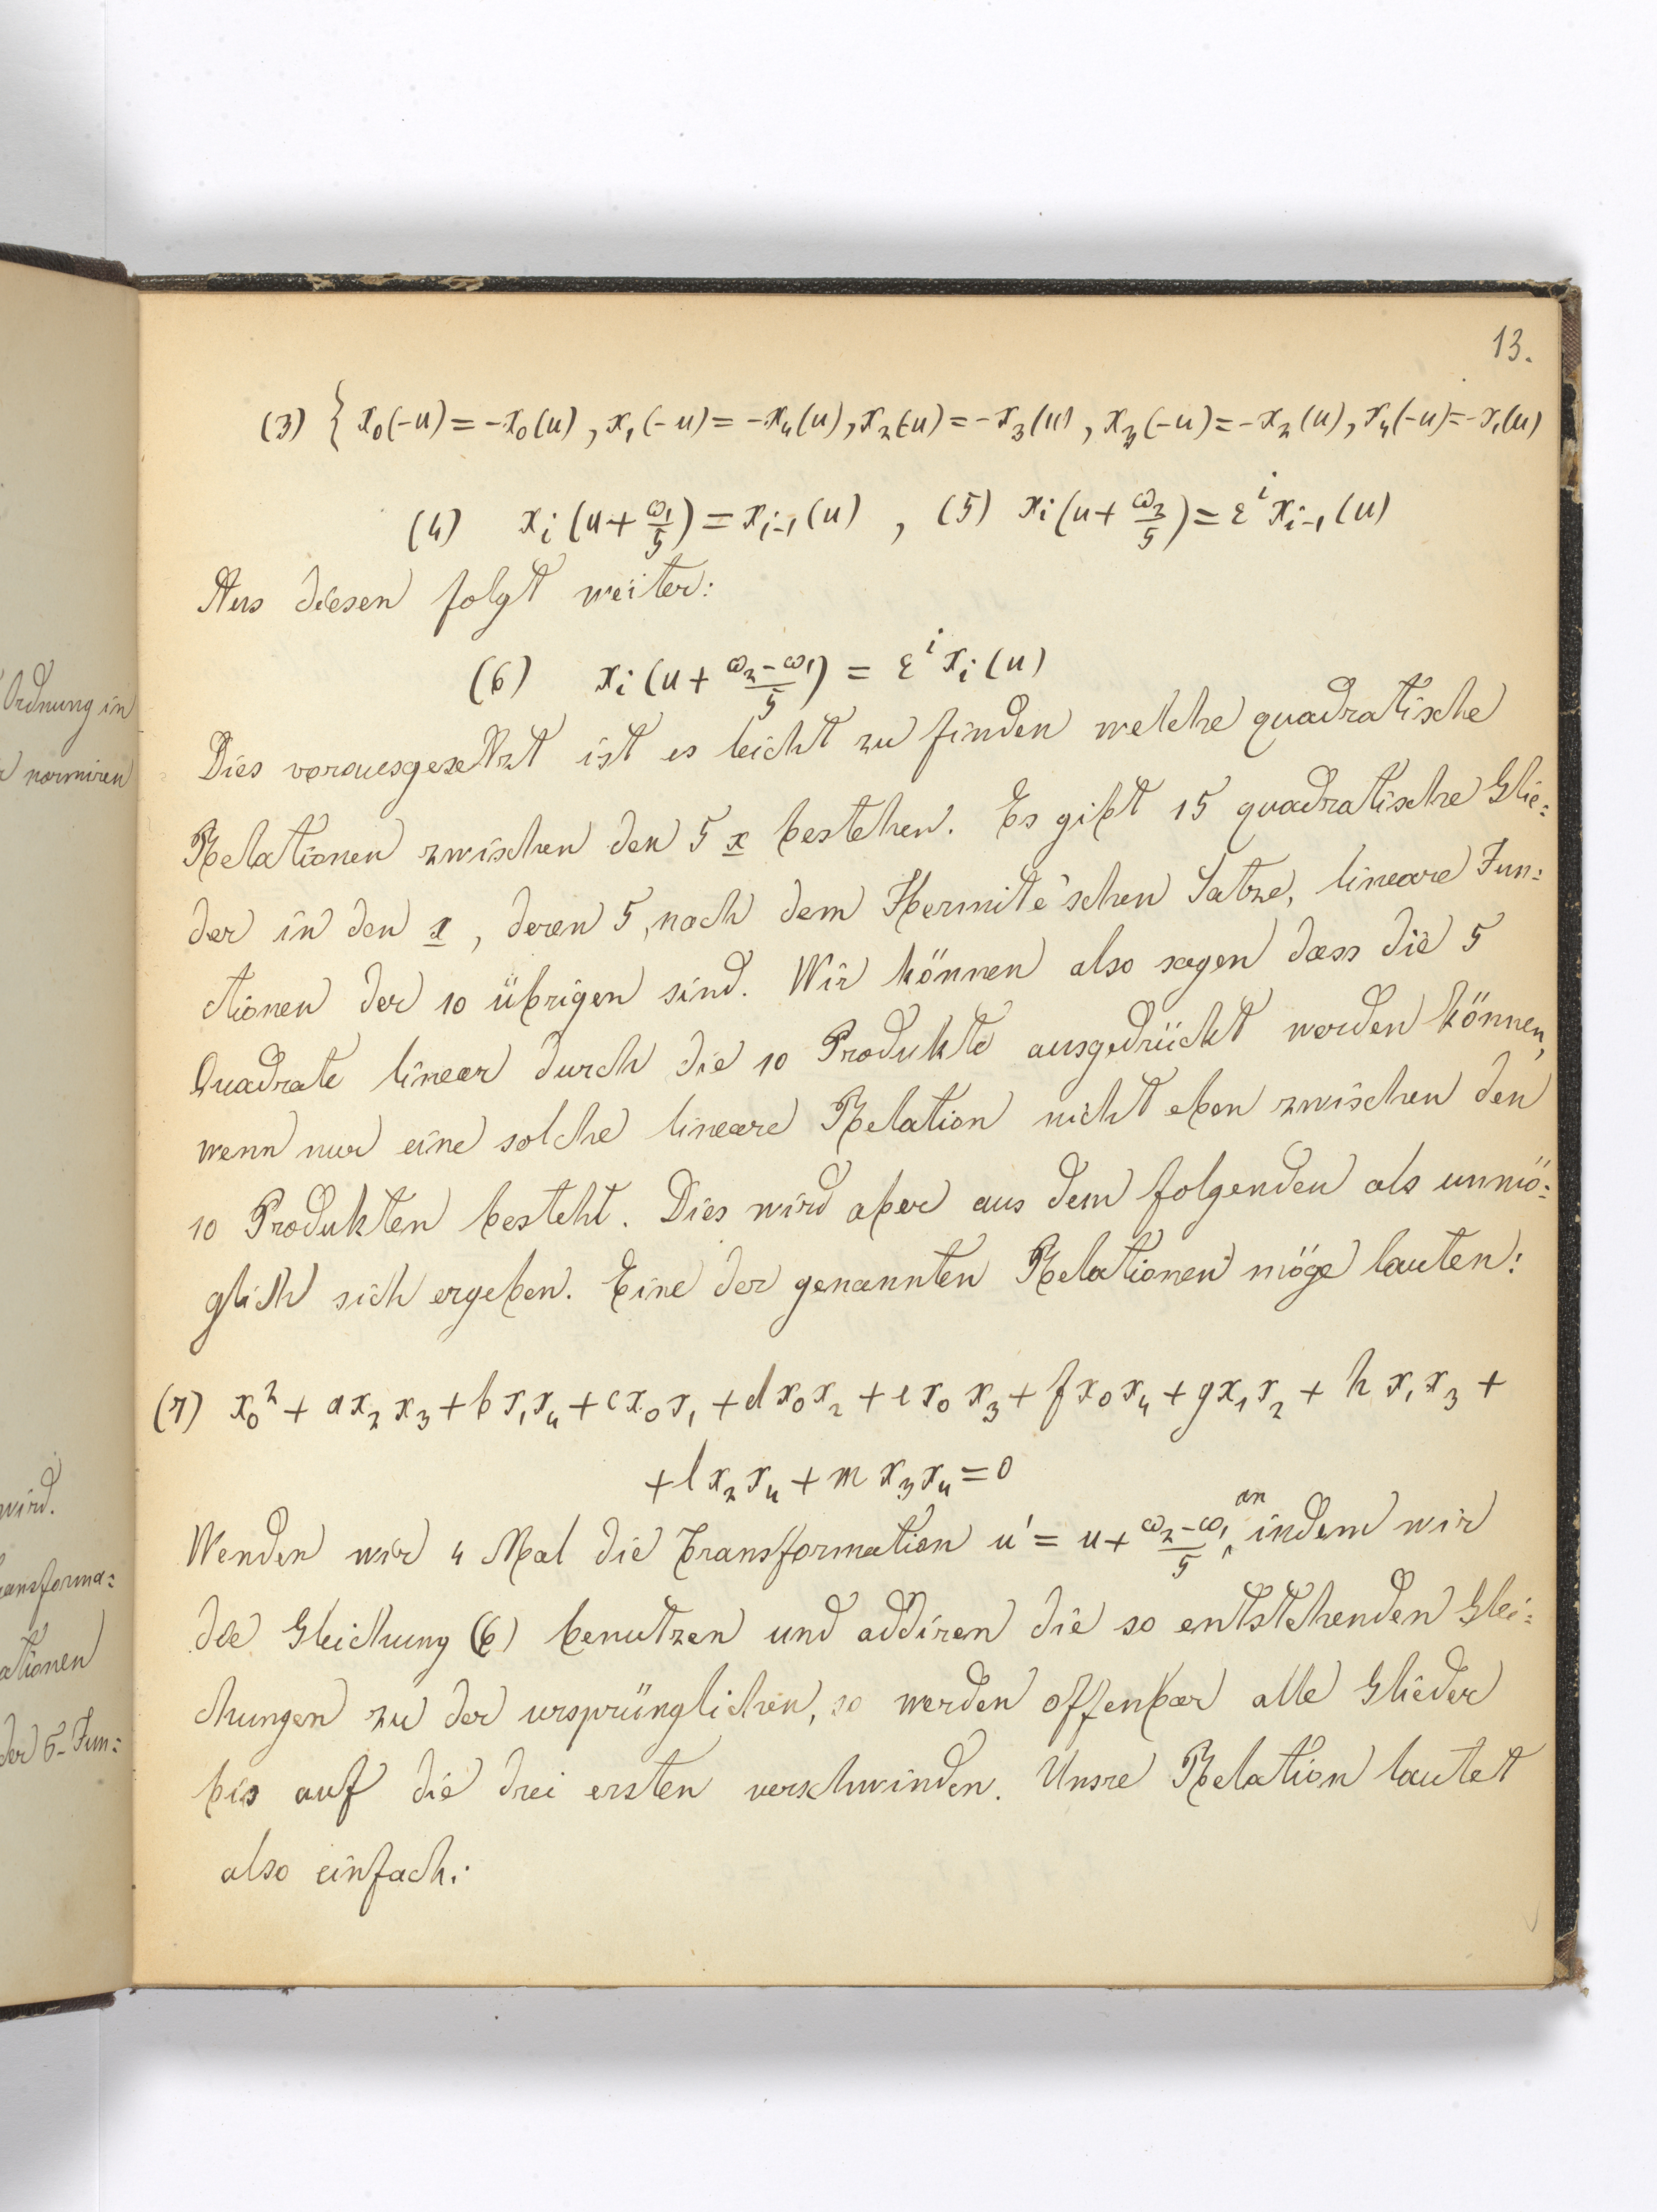 13.
(3) { x₀(-u) = -x₀(u), x₁(-u) = -x₄(u), x₂(-u) = -x₃(u), x₃(-u) = -x₂(u), x₄(-u) = -x₁(u)
(4) xᵢ(u + ω₁/5) = xᵢ₋₁(u) , (5) xᵢ(u + ω₂/5) = εⁱ xᵢ₋₁(u)
Aus diesen folgt weiter:
(6) xᵢ(u + (ω₂-ω₁)/5) = εⁱ xᵢ(u)
Dies vorausgesetzt ist es leicht zu finden welche quadratische
Relationen zwischen den 5 x bestehen. Es gibt 15 quadratische Glie:
der in den x, deren 5, nach dem Hermite'schen Satze, lineare Fun:
ctionen der 10 übrigen sind. Wir können also sagen dass die 5
Quadrate linear durch die 10 Produkte ausgedrückt werden können,
wenn nur eine solche lineare Relation nicht eben zwischen den
10 Produkten besteht. Dies wird aber aus dem folgenden als unmö:
glich sich ergeben. Eine der genannten Relationen möge lauten:
(7) x₀² + a x₂x₃ + b x₁x₄ + c x₀x₁ + d x₀x₂ + e x₀x₃ + f x₀x₄ + g x₁x₂ + h x₁x₃ +
+ l x₂x₄ + m x₃x₄ = 0
Wenden wir 4 Mal die Transformation u' = u + (ω₂-ω₁)/5 an indem wir
die Gleichung (6) benutzen und addiren die so entstehenden Glei:
chungen zu der ursprünglichen, so werden offenbar alle Glieder
bis auf die drei ersten verschwinden. Unsre Relation lautet
also einfach:
Ordnung in
normiren
wird.
ransforma:
ationen
der σ-Fun: